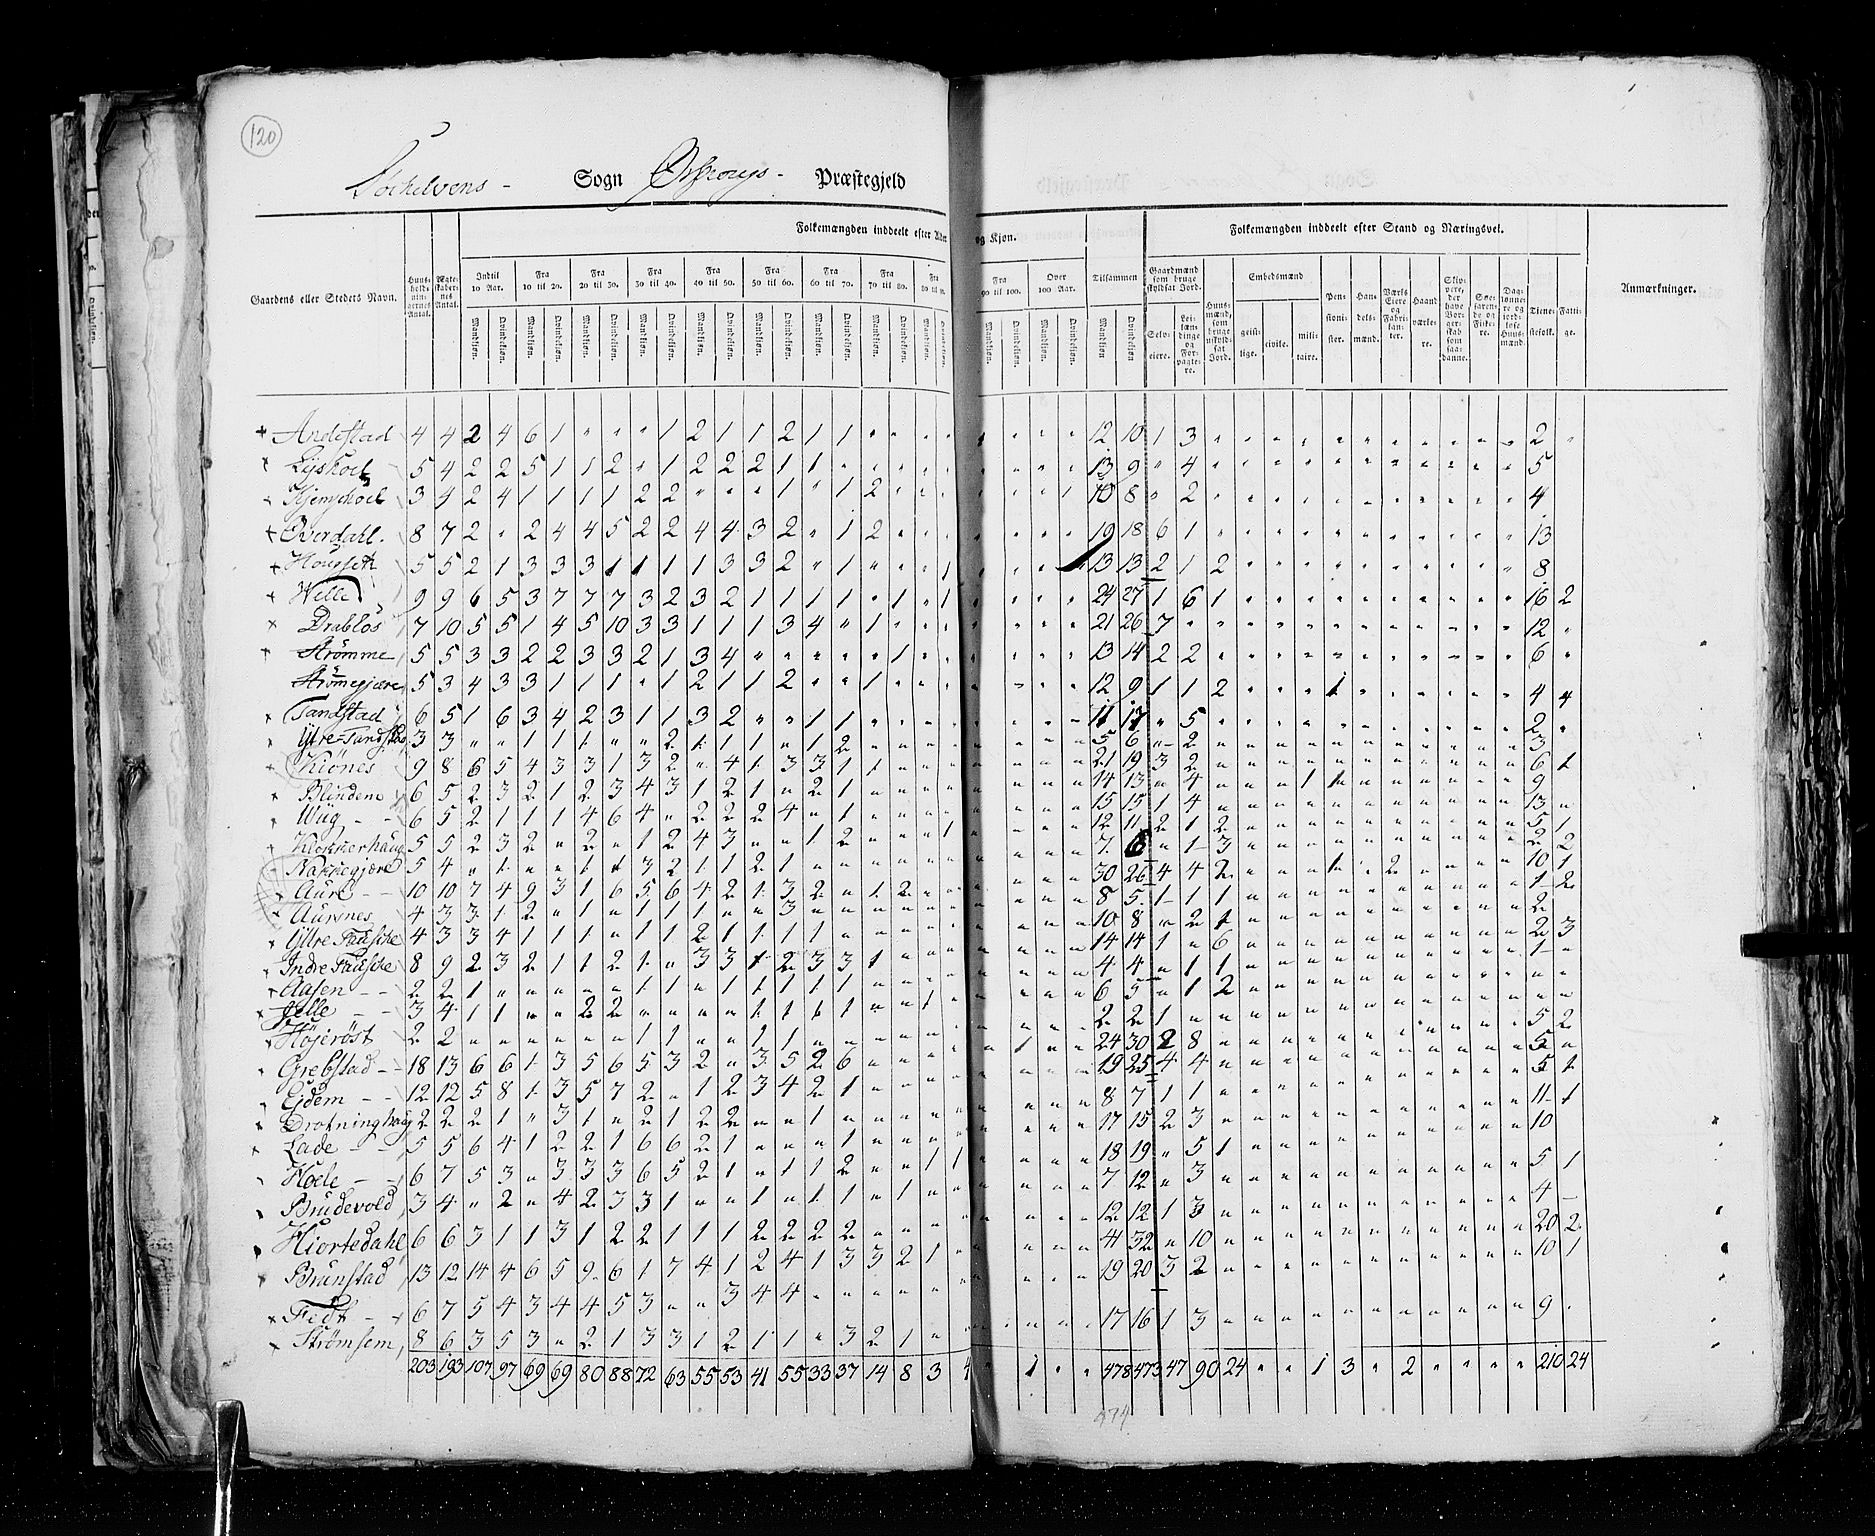 120
Søchelvens - Sogn Ørschougs - Præstegjeld
Folkemængden inddeelt efter Alder og Kjøn. Folkemængden inddeelt efter Stand og Næringsvei.
Gaardens eller Stedets Navn. Huusholdningernes Antal. Ægteskabernes Antal. Indtil 10 Aar. Fra 10 til 20. Fra 20 til 30. Fra 30 til 40. Fra 40 til 50. Fra 50 til 60. Fra 60 til 70. Fra 70 til 80. Fra 80 til 90. Fra 90 til 100. Over 100 Aar. Tilsammen Gaardmænd som bruge skyldsat Jord. Huusmænd, som bruge uskyldsat Jord. Embedsmænd Pensionister. Handelsmænd. Værks Eiere og Fabrikanter. Haandværkere. Skippere, der have Borgerskab som saadanne. Søefarende og Fiskere. Dagslønnere og jordløse Huusmænd. Tienestefolk. Fattige. Anmærkninger.
Mandkjøn. Qvindekjøn. Selveiere. Leilændinge og Forpagtere. geistlige. civile. militaire.
+ Andestad 4 4 2 4 6 1 " " " 1 2 1 1 2 1 1 " " " " " " " " 12 10 1 3 " " " " " " " " " " " 2 "
Lyshoel 5 4 2 2 5 1 1 2 " 1 2 2 2 1 1 " " " " " 13 9 " 4 5
Kjemphoel 3 4 2 4 1 1 1 1 2 2 " " " 1 " 1 2 " " " 10 8 " 2 4
Overdahl. 8 7 2 " 2 4 4 5 2 2 4 4 3 2 " 1 2 " " " 19 18 6 1 13
Hougseth 5 5 2 1 3 3 3 1 1 1 1 3 3 2 " 1 " " " 1 13 13 2 1 2 8
Welle 9 9 6 5 3 7 7 7 3 2 3 2 1 1 1 1 " 1 " 1 24 27 1 6 1 16 2
Drabløs 7 10 5 5 1 4 5 10 3 3 1 1 1 3 4 " 1 " " " 21 26 7 12 "
Strømme 5 5 3 3 2 2 3 3 2 1 3 4 " " " " " 1 " " 13 14 2 2 6 "
Strømegjære 5 3 4 3 3 1 1 1 " 1 2 1 1 2 " " 1 " " " 12 9 1 1 2 1 4 4
Tandstad 6 5 1 6 3 4 2 3 1 1 3 2 " " 1 1 " " " " 11 17 " 5 2 "
Yttre Tandstad 3 3 " " 1 1 1 " " 2 1 1 1 " 1 2 " " " " 5 6 " 2 3
Kiønes 9 8 6 5 4 3 3 1 3 2 " 4 1 3 3 1 1 " " " 21 19 3 2 6 1
Blindem 6 5 2 3 2 1 2 3 4 3 1 2 1 " 2 1 " " " " 14 13 " 4 1 1 9
Wiig 6 5 2 1 1 1 4 6 4 " 2 2 2 4 " 1 " " " " 15 15 1 4 13 "
Klokkerhaug 5 5 2 3 2 " 2 " 1 2 4 3 " " 1 2 " " " 1 12 11 2 1 2 5 1
Nakkegjære 5 4 " 1 " " 1 1 3 2 1 1 2 1 " " " " " " 7 6 " 1 3 2 2
Aure 10 10 7 4 9 3 1 6 5 6 4 2 1 3 2 " 1 2 " " 30 26 4 4 2 1 2 10 1
Aursnes 4 3 3 1 2 " 1 " 1 1 1 " " 3 " " " " " " 8 5 1 1 1 1 2
Yttre Fausche 4 3 3 4 1 1 1 " 1 1 2 1 1 1 1 " " " " " 10 8 " 2 1 2
Indre Fausche 8 9 2 3 2 1 1 2 1 " 3 3 1 2 3 3 1 " " " 14 14 1 " 6 2 3
Aasen 2 2 1 " " " " " 1 1 " 1 1 1 1 1 " " " " 4 4 " 1 1 1 "
Jelle 3 4 1 1 " " 2 2 " " " " 1 1 1 1 " " 1 " 6 5 " 1 2 " "
Højerøst 2 2 " " " " " " 1 1 " " 1 1 " " " " " " 2 2 1 " "
Grebstad 18 13 6 6 1 3 5 6 5 3 2 " 3 5 2 6 " " " " 1 24 30 2 8 5 2
Ejdem 12 12 5 8 1 3 5 7 2 " 1 2 3 4 2 1 " " " " 19 25 4 4 5 1
Drotninghaug 2 2 2 1 " 3 1 " 2 1 2 2 " " 1 " " " " " 8 7 1 1 11 1
Lade 5 5 6 4 1 2 2 1 6 6 2 1 " " " 1 " " " " 17 15 2 3 10
Hoele 6 7 5 3 " 3 3 3 6 5 2 1 " 1 1 2 " " 1 1 18 19 " 5 1 5 1
Brudevold 3 4 " 2 " 4 2 3 3 1 " " 1 " 1 1 " 1 " " 7 12 " 3 4 -
Hiortedahl 6 6 3 1 1 3 1 2 2 1 1 1 2 2 2 2 " " " " 12 12 1 3 20 2
Brunstad 13 12 14 4 6 5 9 6 1 7 4 1 2 4 1 3 3 2 1 " 41 32 " 10 10 1
Fedt 6 7 5 4 3 4 4 5 3 " " 3 4 4 " " " " " " 19 20 3 2
Strømsem 8 6 3 5 3 " 2 1 3 3 1 2 1 1 " 3 2 1 " " 17 16 1 3 9 "
203 193 107 97 69 69 80 88 72 63 55 53 41 55 33 37 14 8 3 4 " 1 " " 478 473 47 90 24 " " 1 3 " 2 " " " " 210 24
474